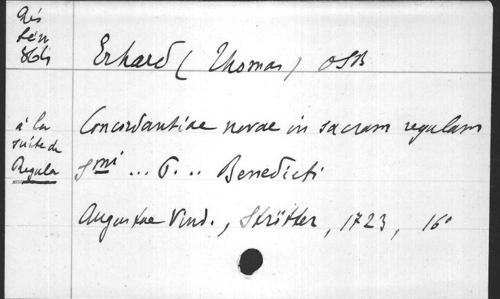 Rés
Bén
864
Erhard (Thomas) OSB
à la
suite de
Regula
Concordantiae novae in sacram regulam
Smi ... P... Benedicti
Augustae Vind., Strötter, 1723, 16°